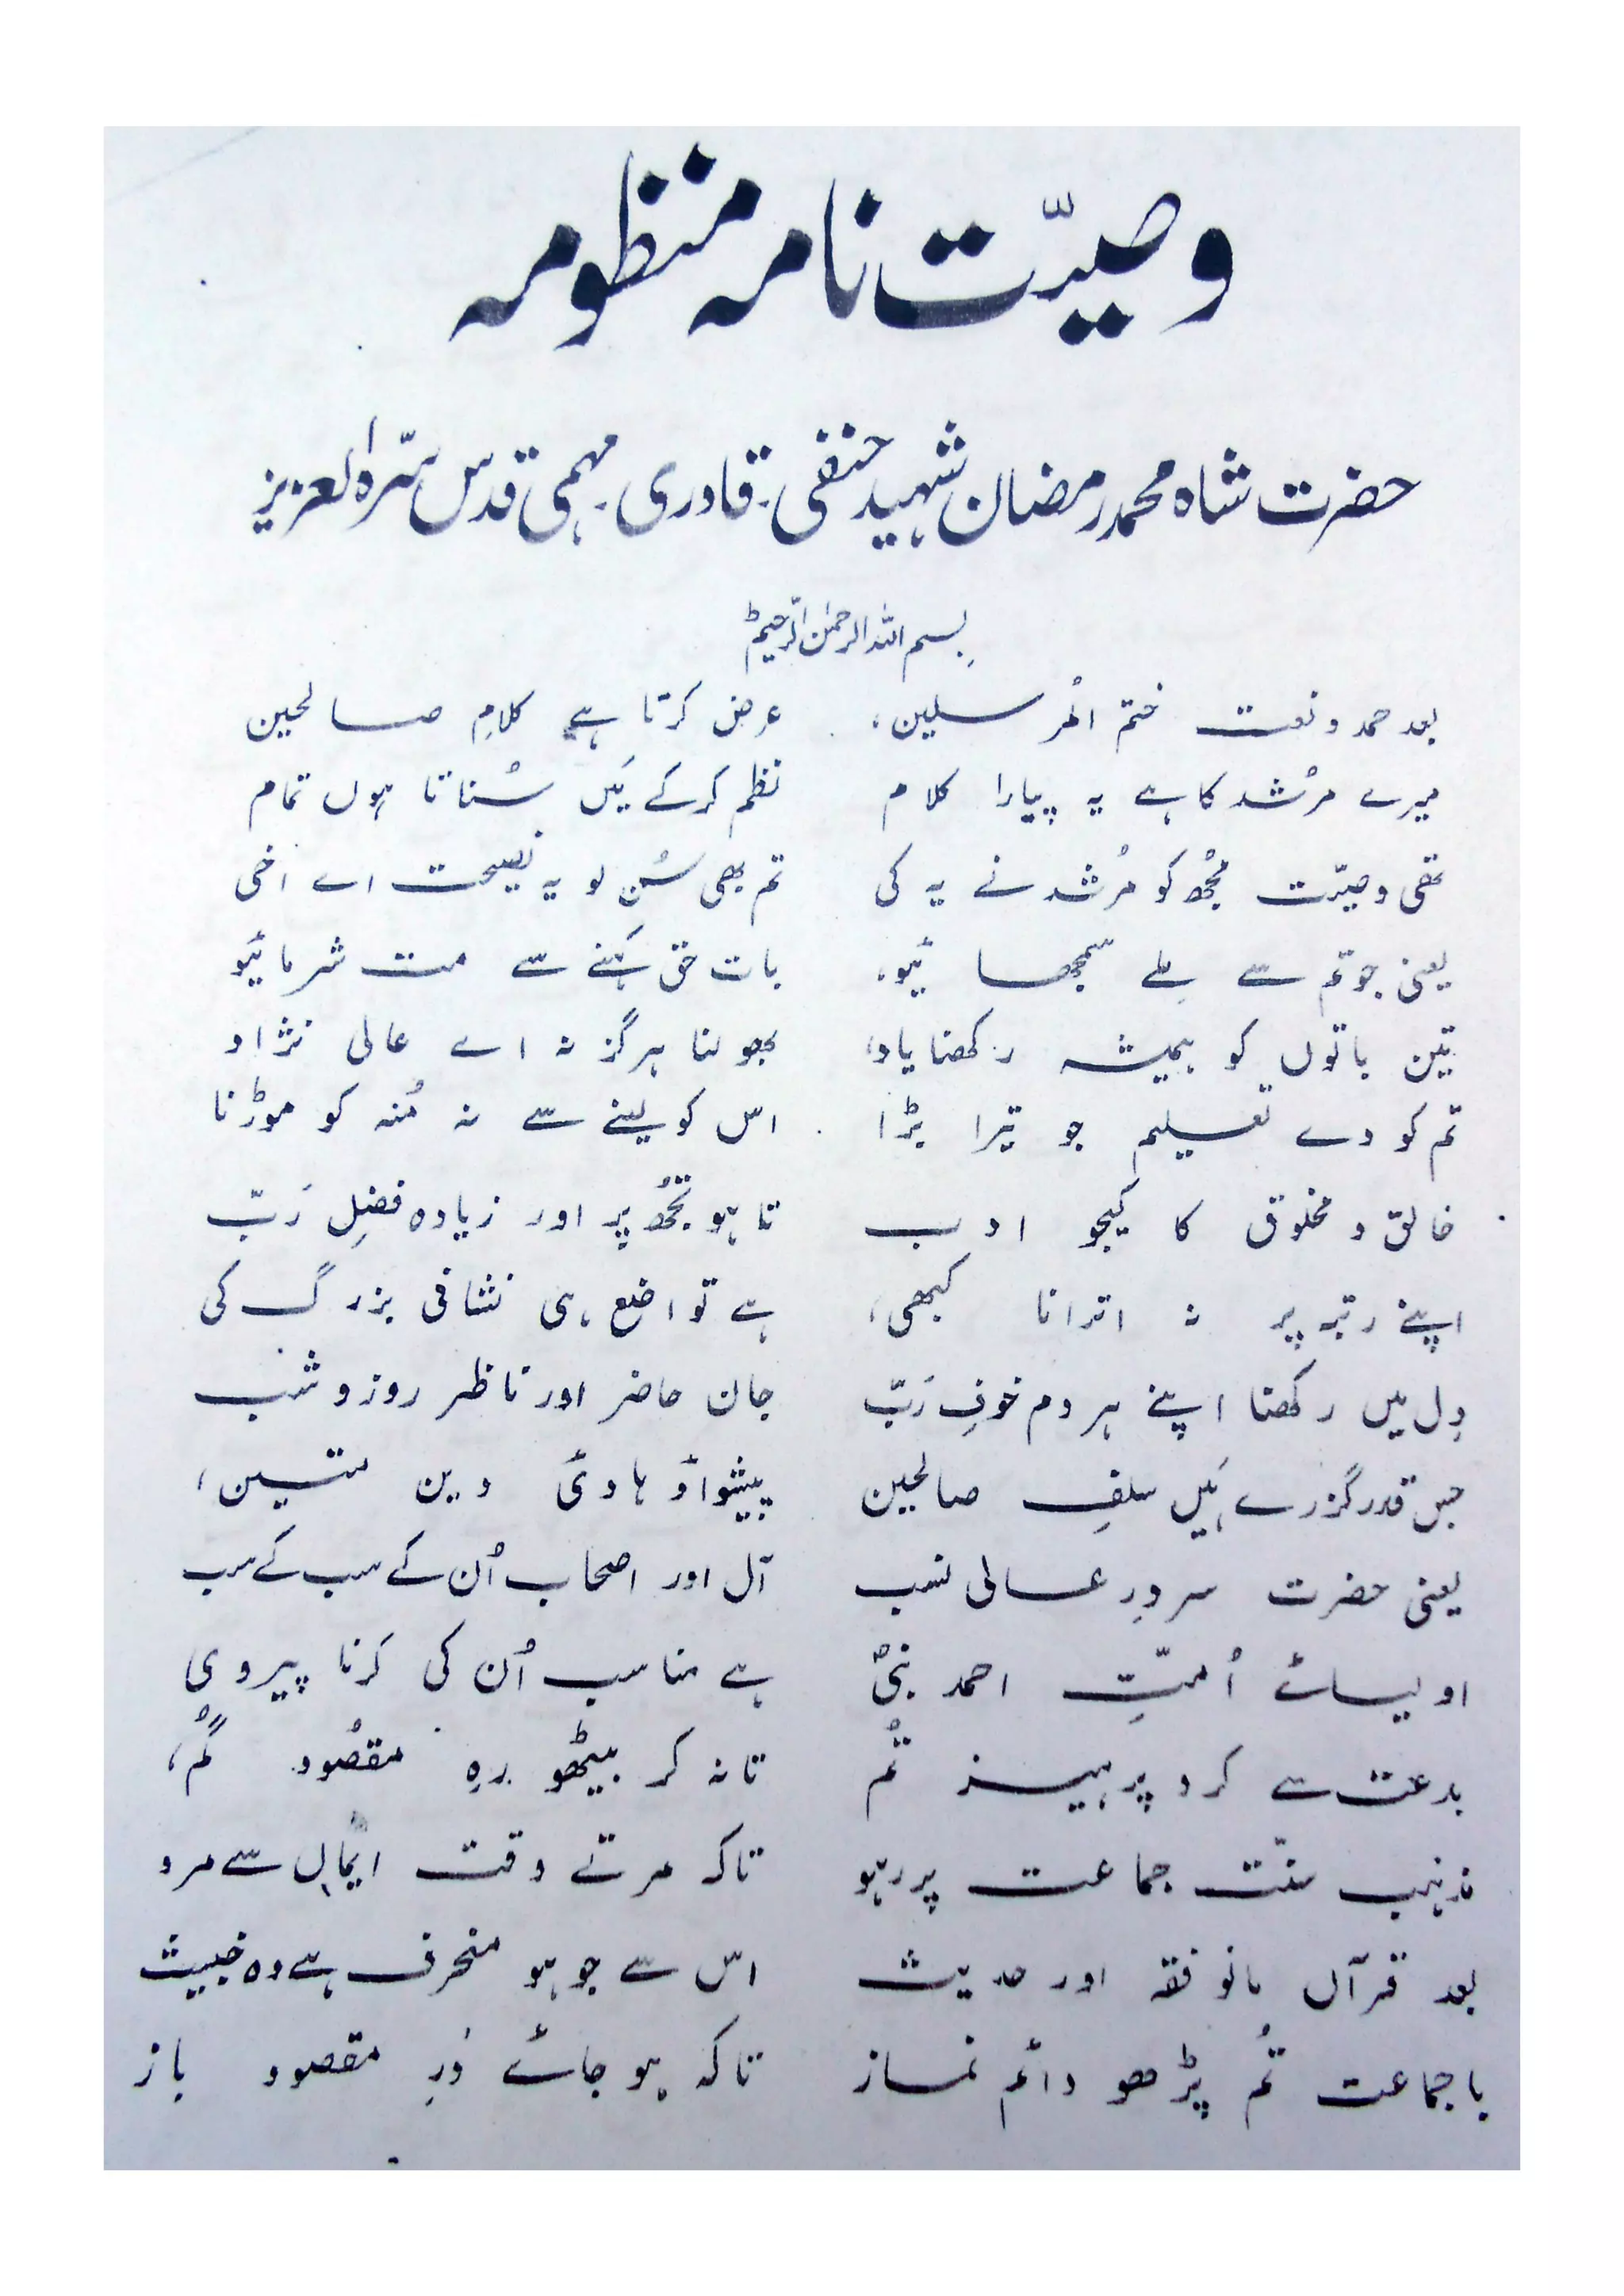 وصیّت نامہ منظومہ
حضرت شاہ محمد رمضان شہید حنفی۔ قادری۔ مہمی قدس سّرہٗ العزیز
بِسم اللہ الرحمٰن الرّحیم ط
بعد حمد و نعت ختم المُرسلین، عرض کرتا ہے کلامِ صالحین
میرے مرُشد کا ہے یہ پیارا کلام نظم کر کے مَیں سُناتا ہوں تمام
تھی وصیّت مجُھ کو مرُشد نے یہ کی تم بھی سُن لو یہ نصیحت اے اخی
یعنی جو تم سے مِلے سمجھائیو، بات حق کہَنے سے مت شرمائیو
تین باتوں کو ہمیشہ رکھنا یاد، بھولنا ہرگز نہ اے عالی نژاد
تم کو دے تعلیم جو تیرا بڑا اس کو لینے سے نہ مُنہ کو موڑنا
خالق و مخلوق کا کیجو ادب تا ہو تجُھ پر اور زیادہ فضلِ رَبّ
اپنے رتبہ پر نہ اترانا کبھی، ہے تواضع ہی نشانی بزرگ کی
دِل میں رکھنا اپنے ہر دم خوفِ رَبّ جان حاضر اور ناظر روز و شب
جس قدر گزرے ہَیں سلفِ صالحین پیشواؤ ہادیٔ دین متین،
یعنی حضرت سرورِ عالی نسب آل اور اصحاب اُن کے سب کے سب
اولیائے اُمّتِ احمد نبیؐ ہے مناسب اُن کی کرنا پیروی
بدعت سے کرو پرہیز تُم تا نہ کر بیٹھو رہِ مقصُود گُم،
مذہب سنّت جماعت پر رہو تاکہ مرتے وقت ایماں سے مرو
بعد قرآں مانو فقہ اور حدیث اس سے جو ہو منحرف ہے وہ خبیث
با جماعت تُم پڑھو دائم نماز تاکہ ہو جائے دَرِ مقصود باز